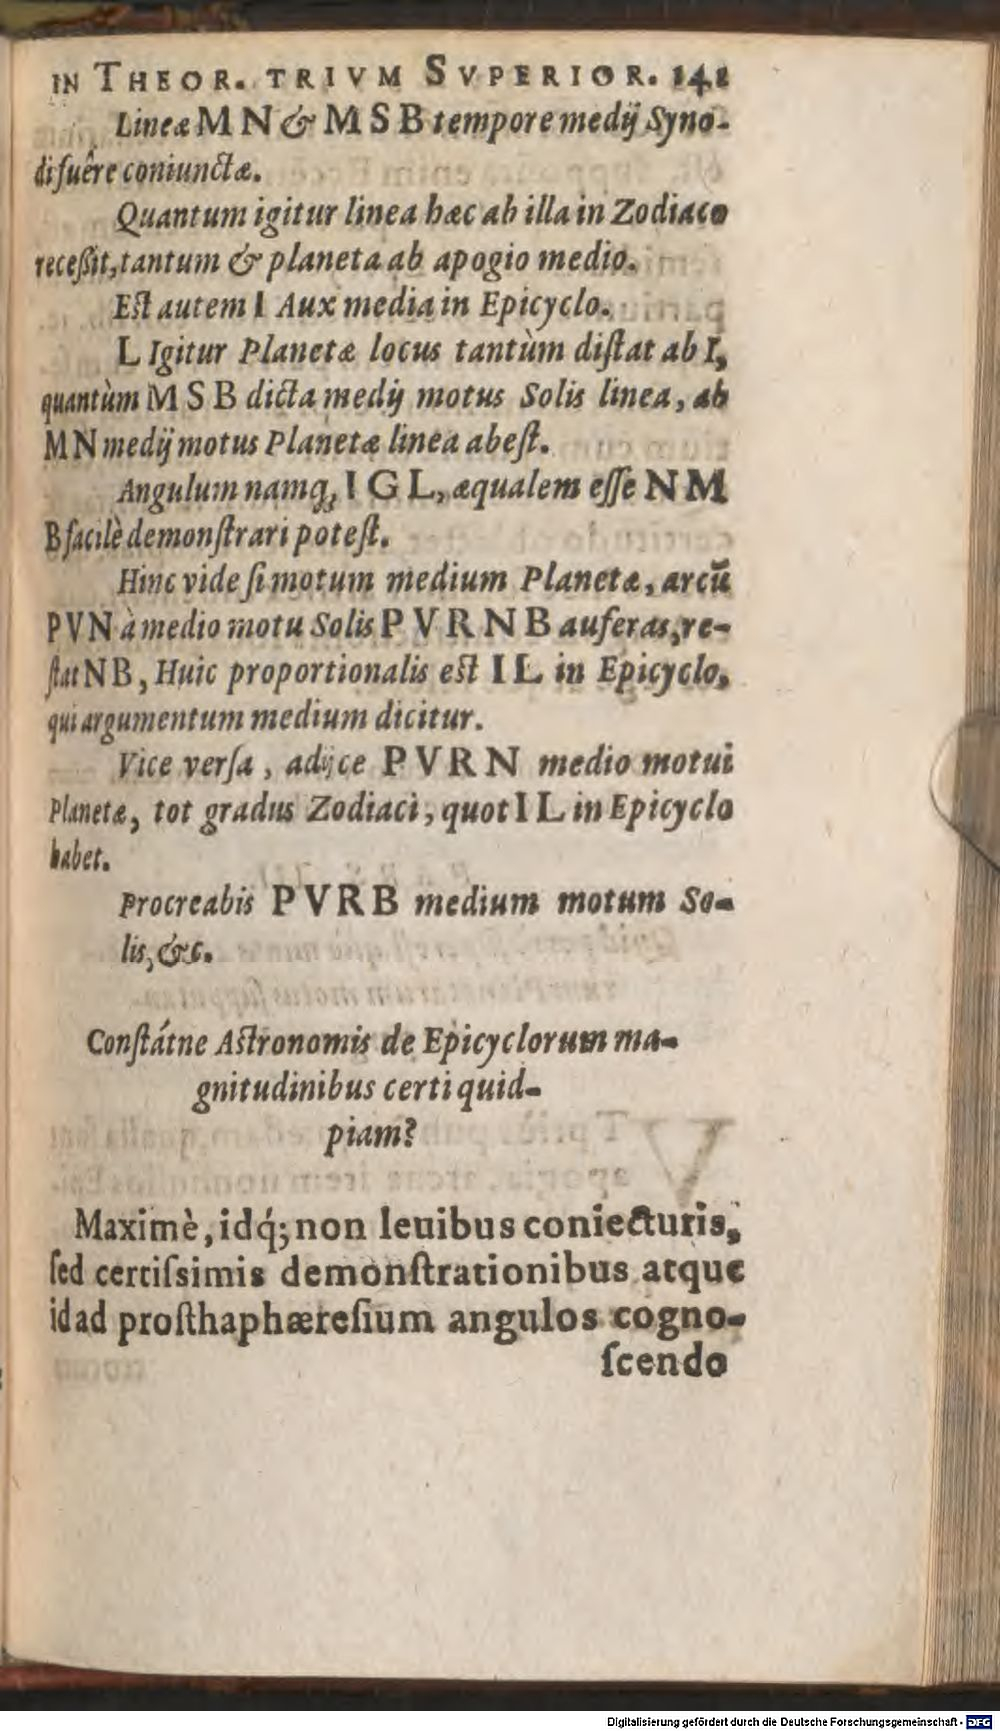 IN THEOR. TRIVM SVPERIOR. 141
Lineæ M N & M S B tempore medij Syno-
di fuêre coniunctæ.
Quantum igitur linea hæc ab illa in Zodiaco
receßit, tantum & planeta ab apogio medio.
Est autem I Aux media in Epicyclo.
L Igitur Planetæ locus tantùm diſtat ab I,
quantùm M S B dicta medij motus Solis linea, ab
M N medij motus Planetæ linea abeſt.
Angulum namq́; I G L, æqualem eſſe N M
B facilè demonſtrari poteſt.
Hinc vide ſi motum medium Planetæ, arcū
P V N à medio motu Solis P V R N B auferas, re-
ſtat N B, Huic proportionalis est I L in Epicyclo,
qui argumentum medium dicitur.
Vice verſa, adijce P V R N medio motui
Planetæ, tot gradus Zodiaci, quot I L in Epicyclo
habet.
Procreabis P V R B medium motum So-
lis, &c.
Conſtátne Astronomis de Epicyclorum ma-
gnitudinibus certi quid-
piam?
Maximè, idq́; non leuibus coniecturis,
ſed certiſsimis demonſtrationibus atque
id ad proſthaphæreſium angulos cogno-
ſcendo
Digitalisierung gefördert durch die Deutsche Forschungsgemeinschaft - DFG